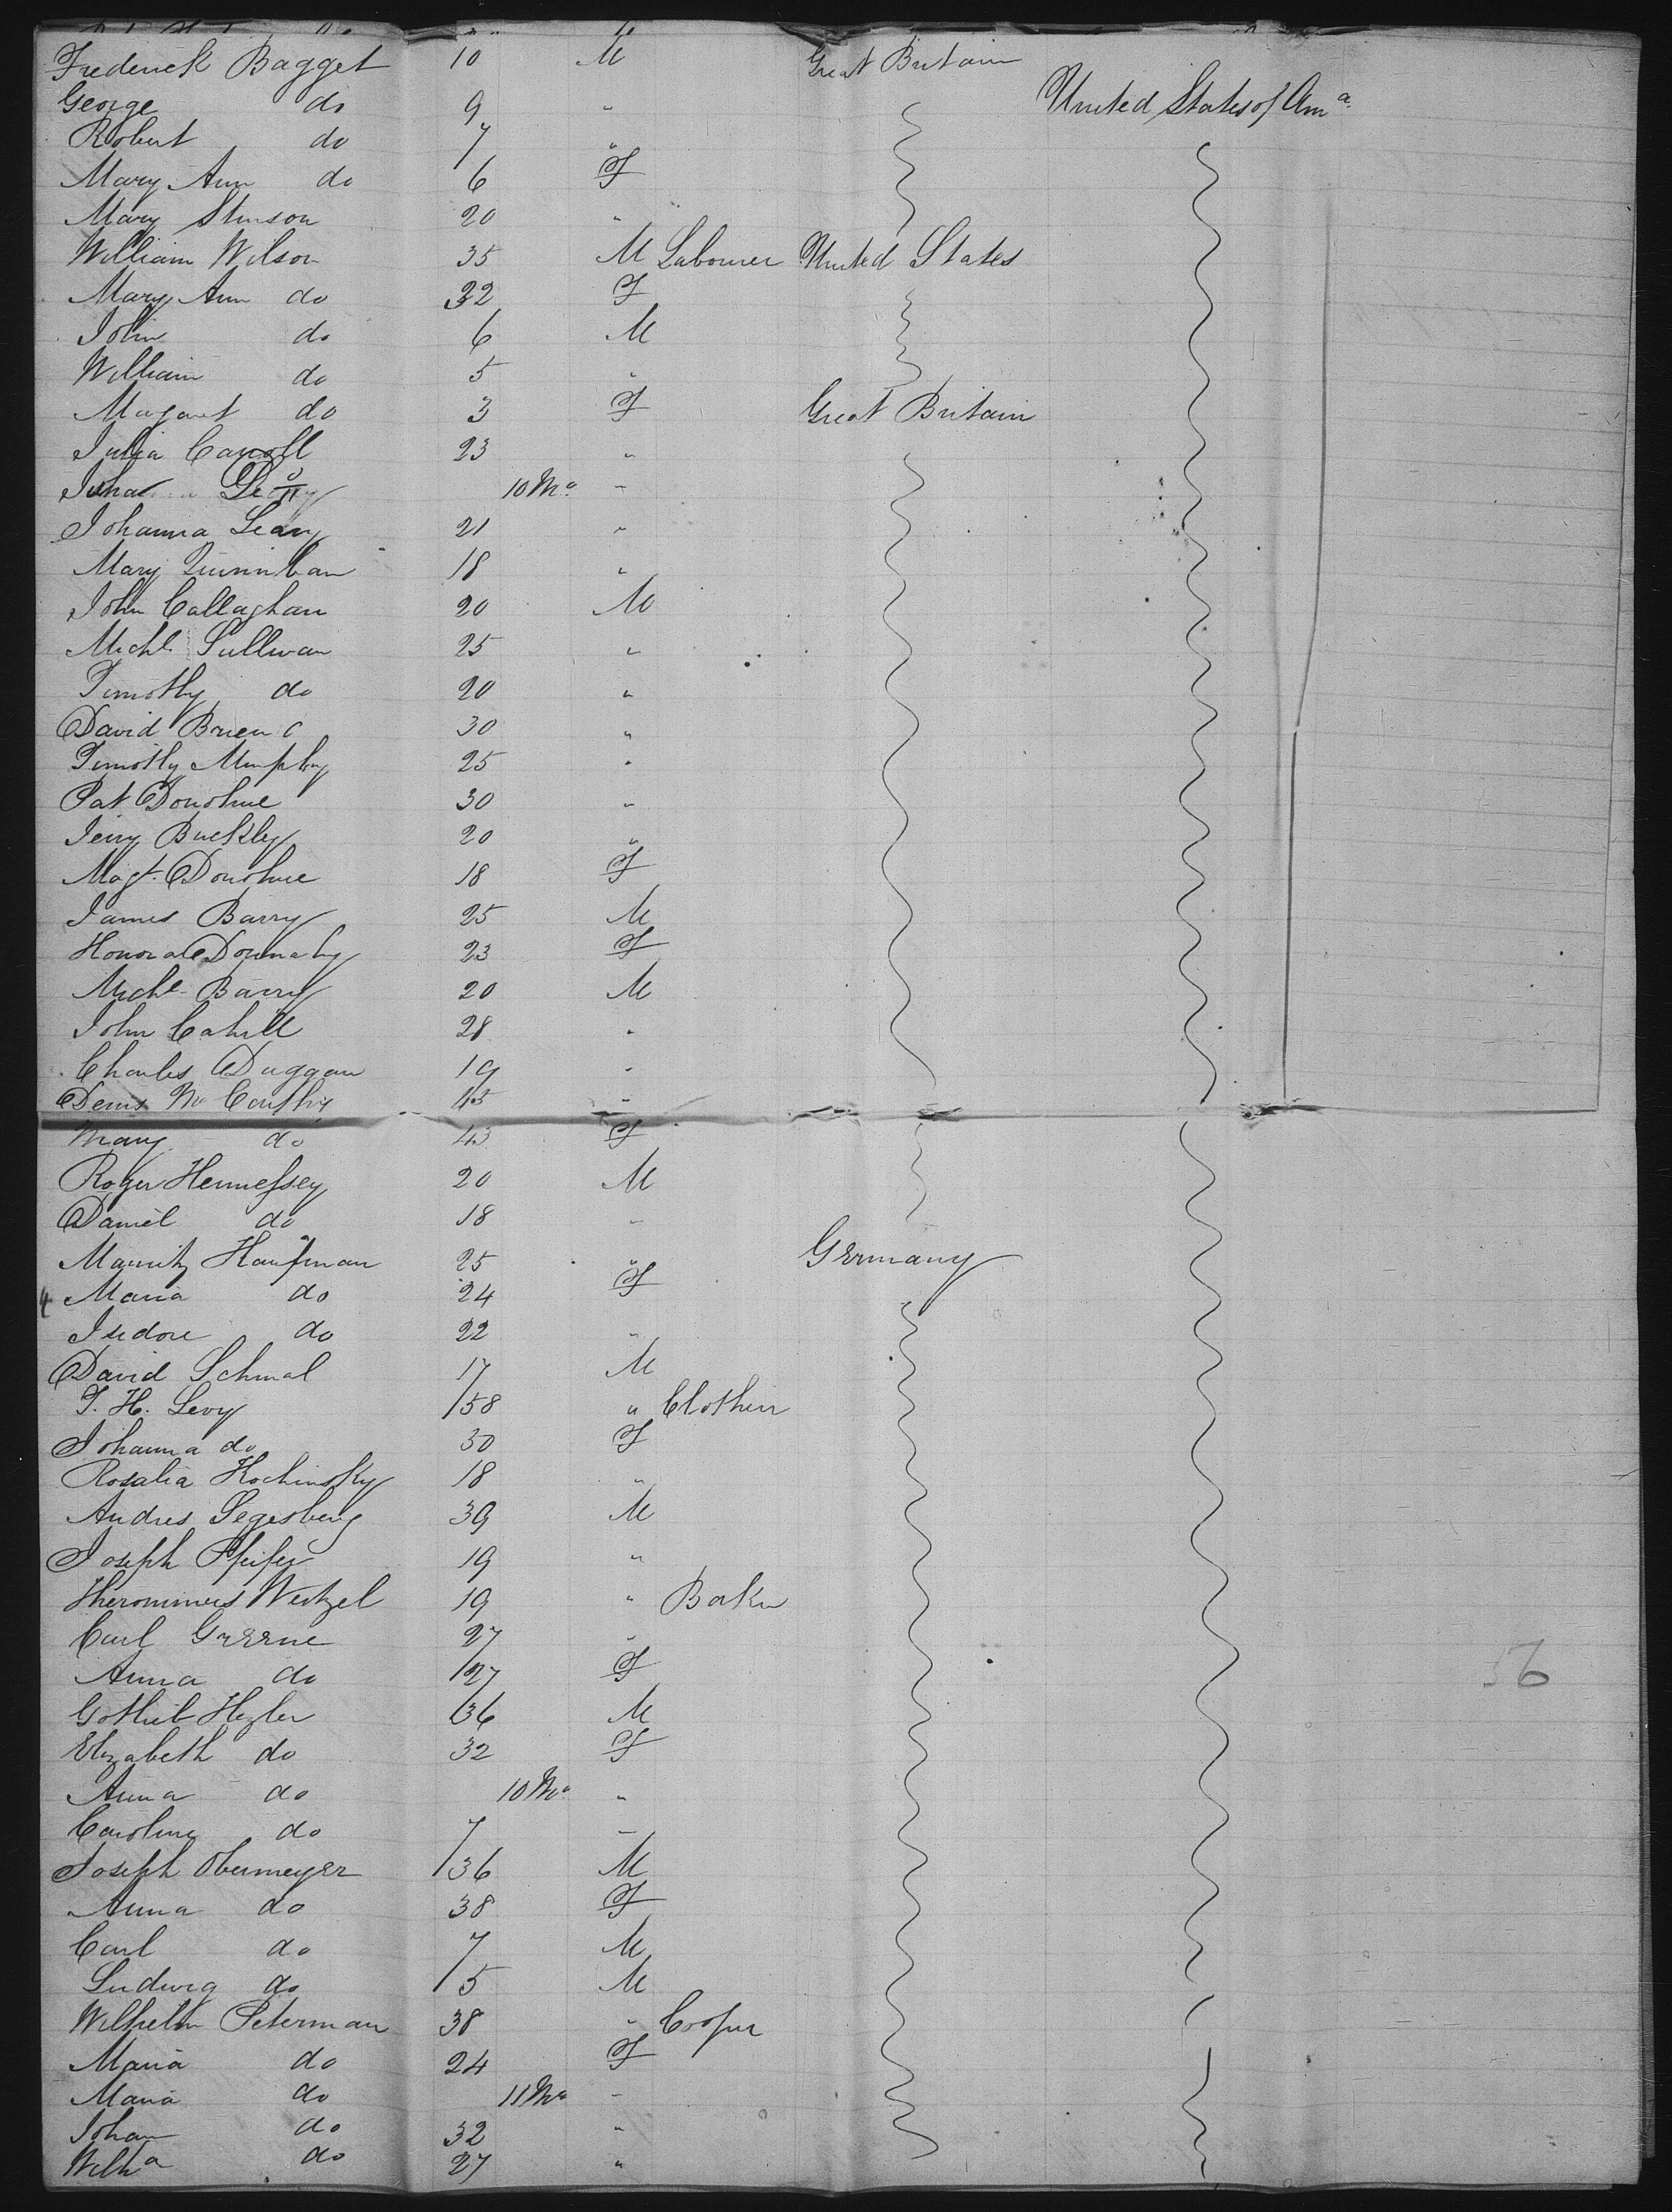 Frederick Bagget 10 M Great Britain
George do 9 " United States of Ama
Robert do 7 "
Mary Ann do 6 F
Mary Stinson 20 "
William Wilson 35 M Labourer United States
Mary Ann do 32 F
John do 6 M
William do 5 "
Magaret do 3 F Great Britain
Julia Carroll 23 "
10 Mo "
Johanna Leary 21 "
Mary Quinnihan 18 "
John Callaghan 20 M
Michl Sullivan 25 "
Timothy do 20 "
David Brien 30 "
Timothy Murphy 25 "
Pat Donohue 30 "
Jerry Buckley 20 "
Magt. Donohue 18 F
James Barry 25 M
Honora 23 F
Michl Barry 20 M
John Cahill 28 "
Charles Duggan 19 "
Denis Mc Carthy 45 "
Mary do 43 F
Roger Hennessey 20 M
Daniel do 18 "
Mauritz Haufman 25 " Germany
Maria do 24 F
Isidore do 22 "
David Schmal 17 M
T. H. Levy 58 " Clothier
Johanna do 30 F
Rosalia Kochinsky 18 "
Andres Segesberg 39 M
Joseph Pfeifer 19 "
Hieronimus Weitzel 19 " Baker
Carl Greene 27 "
Anna do 27 F
Gotlieb Hezler 36 M
Elizabeth do 32 F
Anna do 10 Mo "
Caroline do 7 "
Joseph Obermeyer 36 M
Anna do 38 F
Carl do 7 M
Ludwig do 5 M
Wilhelm Peterman 38 " Cooper
Maria do 24 F
Maria do 11 Mo "
Johan do 32 "
Wilha do 27 "
36